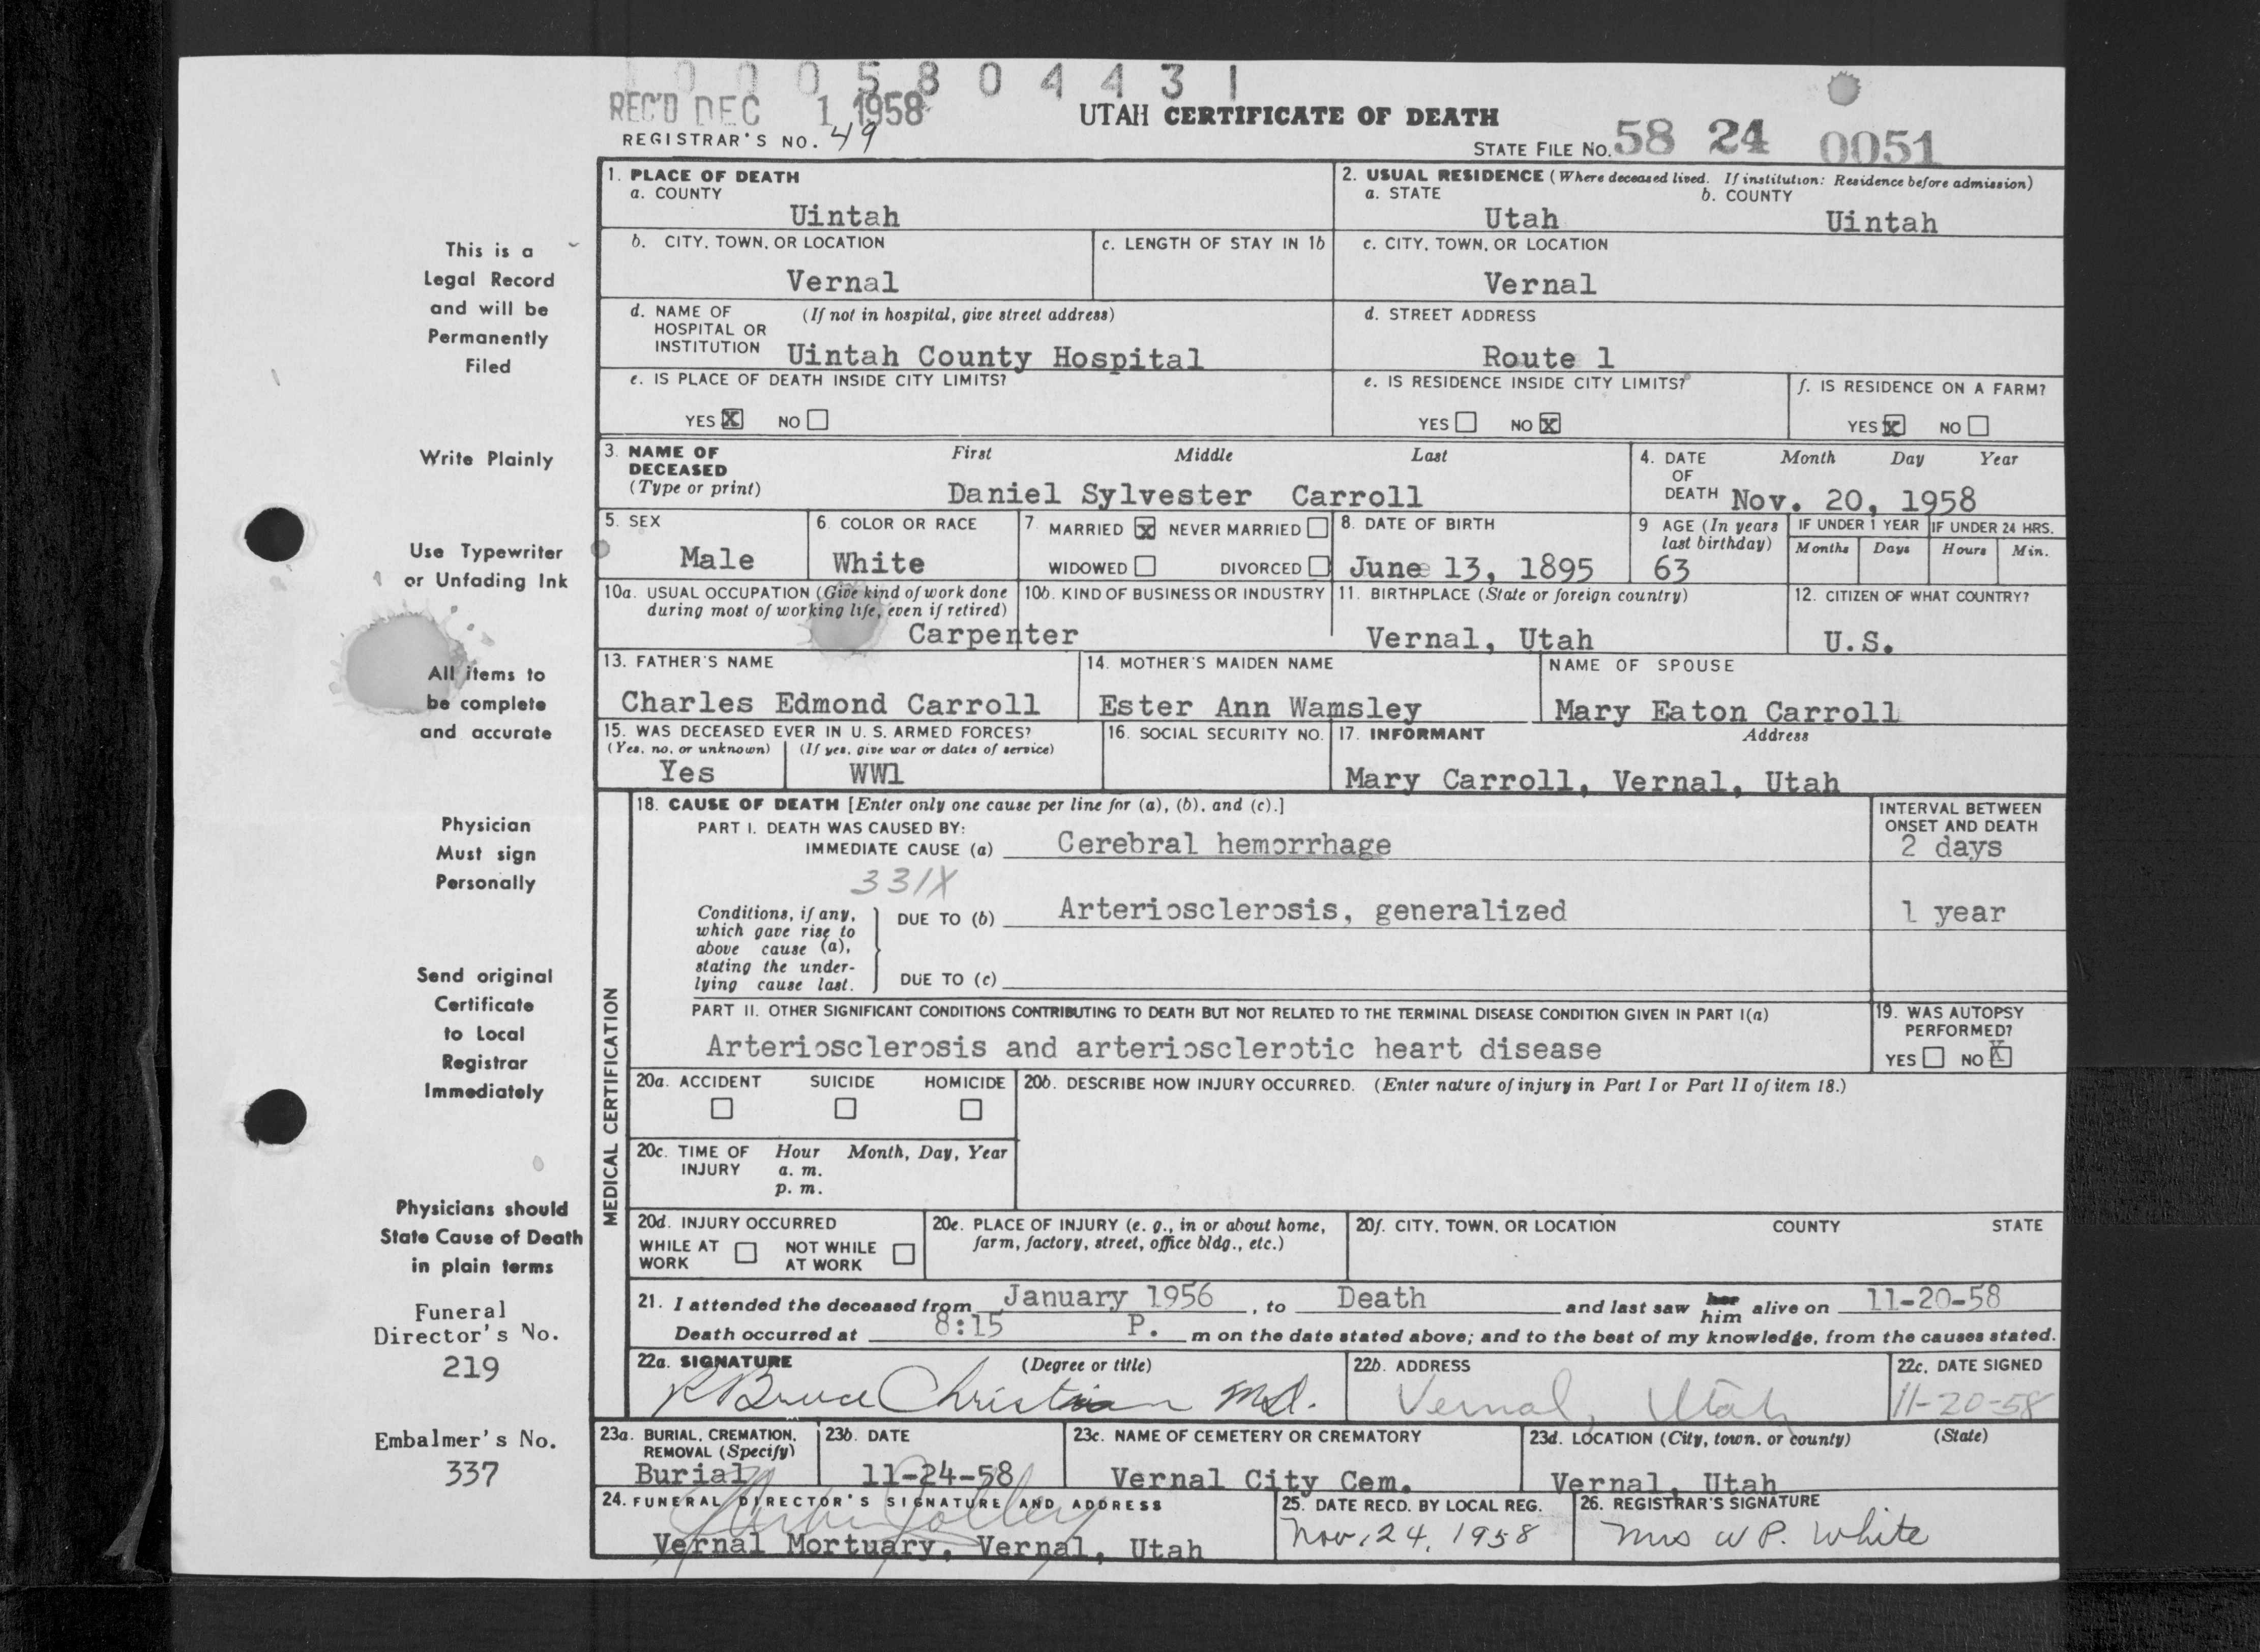 0 0 0 5 8 0 4 4 3 1
REC'D DEC 1 1958
UTAH CERTIFICATE OF DEATH
REGISTRAR'S NO. 49
STATE FILE NO. 58 24 0051
1. PLACE OF DEATH
a. COUNTY
Uintah
2. USUAL RESIDENCE (Where deceased lived. If institution: Residence before admission)
a. STATE b. COUNTY
Utah Uintah
b. CITY, TOWN, OR LOCATION
Vernal
c. LENGTH OF STAY IN 1b
c. CITY, TOWN, OR LOCATION
Vernal
d. NAME OF HOSPITAL OR INSTITUTION
(If not in hospital, give street address)
Uintah County Hospital
d. STREET ADDRESS
Route 1
e. IS PLACE OF DEATH INSIDE CITY LIMITS?
YES X NO
e. IS RESIDENCE INSIDE CITY LIMITS?
YES NO X
f. IS RESIDENCE ON A FARM?
YES X NO
3. NAME OF DECEASED
(Type or print)
First Middle Last
Daniel Sylvester Carroll
4. DATE OF DEATH
Month Day Year
Nov. 20, 1958
5. SEX
Male
6. COLOR OR RACE
White
7. MARRIED X NEVER MARRIED
WIDOWED DIVORCED
8. DATE OF BIRTH
June 13, 1895
9 AGE (In years last birthday)
63
IF UNDER 1 YEAR
Months Days
IF UNDER 24 HRS.
Hours Min.
10a. USUAL OCCUPATION (Give kind of work done during most of working life, even if retired)
Carpenter
10b. KIND OF BUSINESS OR INDUSTRY
11. BIRTHPLACE (State or foreign country)
Vernal, Utah
12. CITIZEN OF WHAT COUNTRY?
U.S.
13. FATHER'S NAME
Charles Edmond Carroll
14. MOTHER'S MAIDEN NAME
Ester Ann Wamsley
NAME OF SPOUSE
Mary Eaton Carroll
15. WAS DECEASED EVER IN U. S. ARMED FORCES?
(Yes, no, or unknown) (If yes, give war or dates of service)
Yes WW1
16. SOCIAL SECURITY NO.
17. INFORMANT Address
Mary Carroll, Vernal, Utah
MEDICAL CERTIFICATION
18. CAUSE OF DEATH [Enter only one cause per line for (a), (b), and (c).]
INTERVAL BETWEEN ONSET AND DEATH
PART I. DEATH WAS CAUSED BY:
IMMEDIATE CAUSE (a) Cerebral hemorrhage 2 days
331X
Conditions, if any, which gave rise to above cause (a), stating the underlying cause last.
DUE TO (b) Arteriosclerosis, generalized 1 year
DUE TO (c)
PART II. OTHER SIGNIFICANT CONDITIONS CONTRIBUTING TO DEATH BUT NOT RELATED TO THE TERMINAL DISEASE CONDITION GIVEN IN PART I(a)
Arteriosclerosis and arteriosclerotic heart disease
19. WAS AUTOPSY PERFORMED?
YES NO X
20a. ACCIDENT SUICIDE HOMICIDE
20b. DESCRIBE HOW INJURY OCCURRED. (Enter nature of injury in Part I or Part II of item 18.)
20c. TIME OF INJURY Hour Month, Day, Year
a. m.
p. m.
20d. INJURY OCCURRED
WHILE AT WORK NOT WHILE AT WORK
20e. PLACE OF INJURY (e. g., in or about home, farm, factory, street, office bldg., etc.)
20f. CITY, TOWN, OR LOCATION COUNTY STATE
21. I attended the deceased from January 1956, to Death and last saw her him alive on 11-20-58
Death occurred at 8:15 P. m on the date stated above; and to the best of my knowledge, from the causes stated.
22a. SIGNATURE (Degree or title)
R Bruce Christian M.D.
22b. ADDRESS
Vernal, Utah
22c. DATE SIGNED
11-20-58
23a. BURIAL, CREMATION, REMOVAL (Specify)
Burial
23b. DATE
11-24-58
23c. NAME OF CEMETERY OR CREMATORY
Vernal City Cem.
23d. LOCATION (City, town, or county) (State)
Vernal, Utah
24. FUNERAL DIRECTOR'S SIGNATURE AND ADDRESS
Vernal Mortuary, Vernal, Utah
25. DATE RECD. BY LOCAL REG.
Nov. 24, 1958
26. REGISTRAR'S SIGNATURE
Mrs W P. White
This is a
Legal Record
and will be
Permanently
Filed
Write Plainly
Use Typewriter
or Unfading Ink
All items to
be complete
and accurate
Physician
Must sign
Personally
Send original
Certificate
to Local
Registrar
Immediately
Physicians should
State Cause of Death
in plain terms
Funeral
Director's No.
219
Embalmer's No.
337